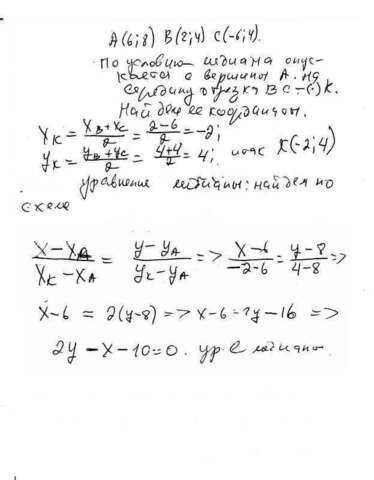 A(6;8) B(2;4) C(-6;4).
По условию медиана опус-
кается с вершины А. на
середину отрезка ВС – (·) К.
Найдем ее координаты.
X_K = (X_B + X_C)/2 = (2-6)/2 = -2;
У_K = (У_B + У_C)/2 = (4+4)/2 = 4; K(-2;4)
уравнение медианы: найдем по
схеме
(X - X_A)/(X_K - X_A) = (У - У_A)/(У_K - У_A) => (X-6)/(-2-6) = (У-8)/(4-8) =>
X-6 = 2(У-8) => X-6 = 2У-16 =>
2У - X - 10 = 0. ур-е медианы.